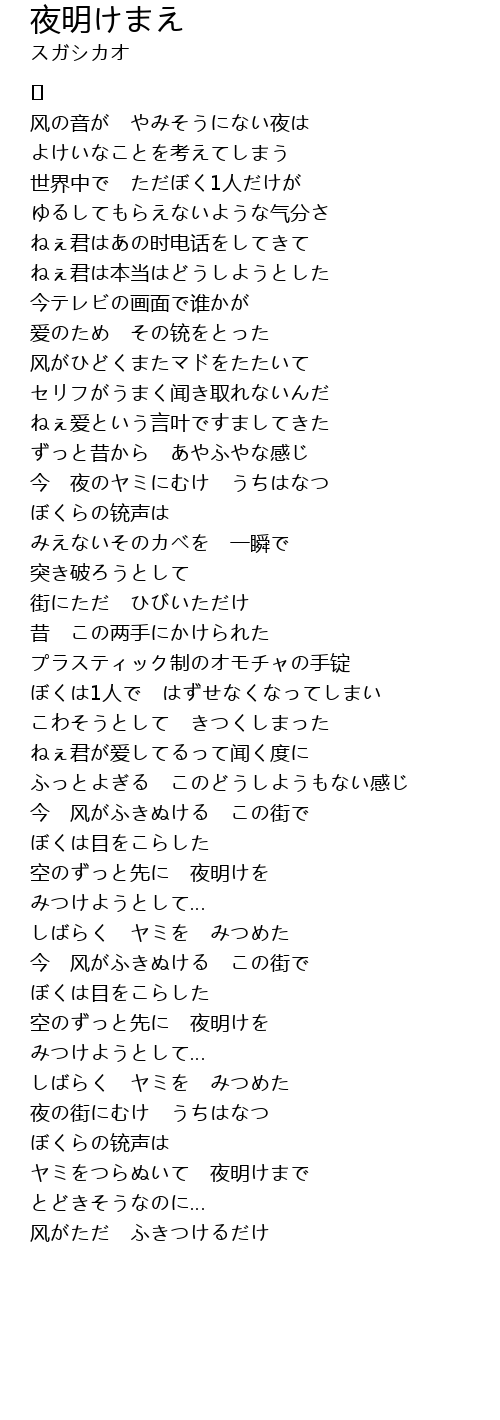 夜明けまえ
スガシカオ
[]
风の音が　やみそうにない夜は
よけいなことを考えてしまう
世界中で　ただぼく1人だけが
ゆるしてもらえないような气分さ
ねぇ君はあの时电话をしてきて
ねぇ君は本当はどうしようとした
今テレビの画面で谁かが
爱のため　その铳をとった
风がひどくまたマドをたたいて
セリフがうまく闻き取れないんだ
ねぇ爱という言叶ですましてきた
ずっと昔から　あやふやな感じ
今　夜のヤミにむけ　うちはなつ
ぼくらの铳声は
みえないそのカベを　一瞬で
突き破ろうとして
街にただ　ひびいただけ
昔　この两手にかけられた
プラスティック制のオモチャの手锭
ぼくは1人で　はずせなくなってしまい
こわそうとして　きつくしまった
ねぇ君が爱してるって闻く度に
ふっとよぎる　このどうしようもない感じ
今　风がふきぬける　この街で
ぼくは目をこらした
空のずっと先に　夜明けを
みつけようとして...
しばらく　ヤミを　みつめた
今　风がふきぬける　この街で
ぼくは目をこらした
空のずっと先に　夜明けを
みつけようとして...
しばらく　ヤミを　みつめた
夜の街にむけ　うちはなつ
ぼくらの铳声は
ヤミをつらぬいて　夜明けまで
とどきそうなのに...
风がただ　ふきつけるだけ